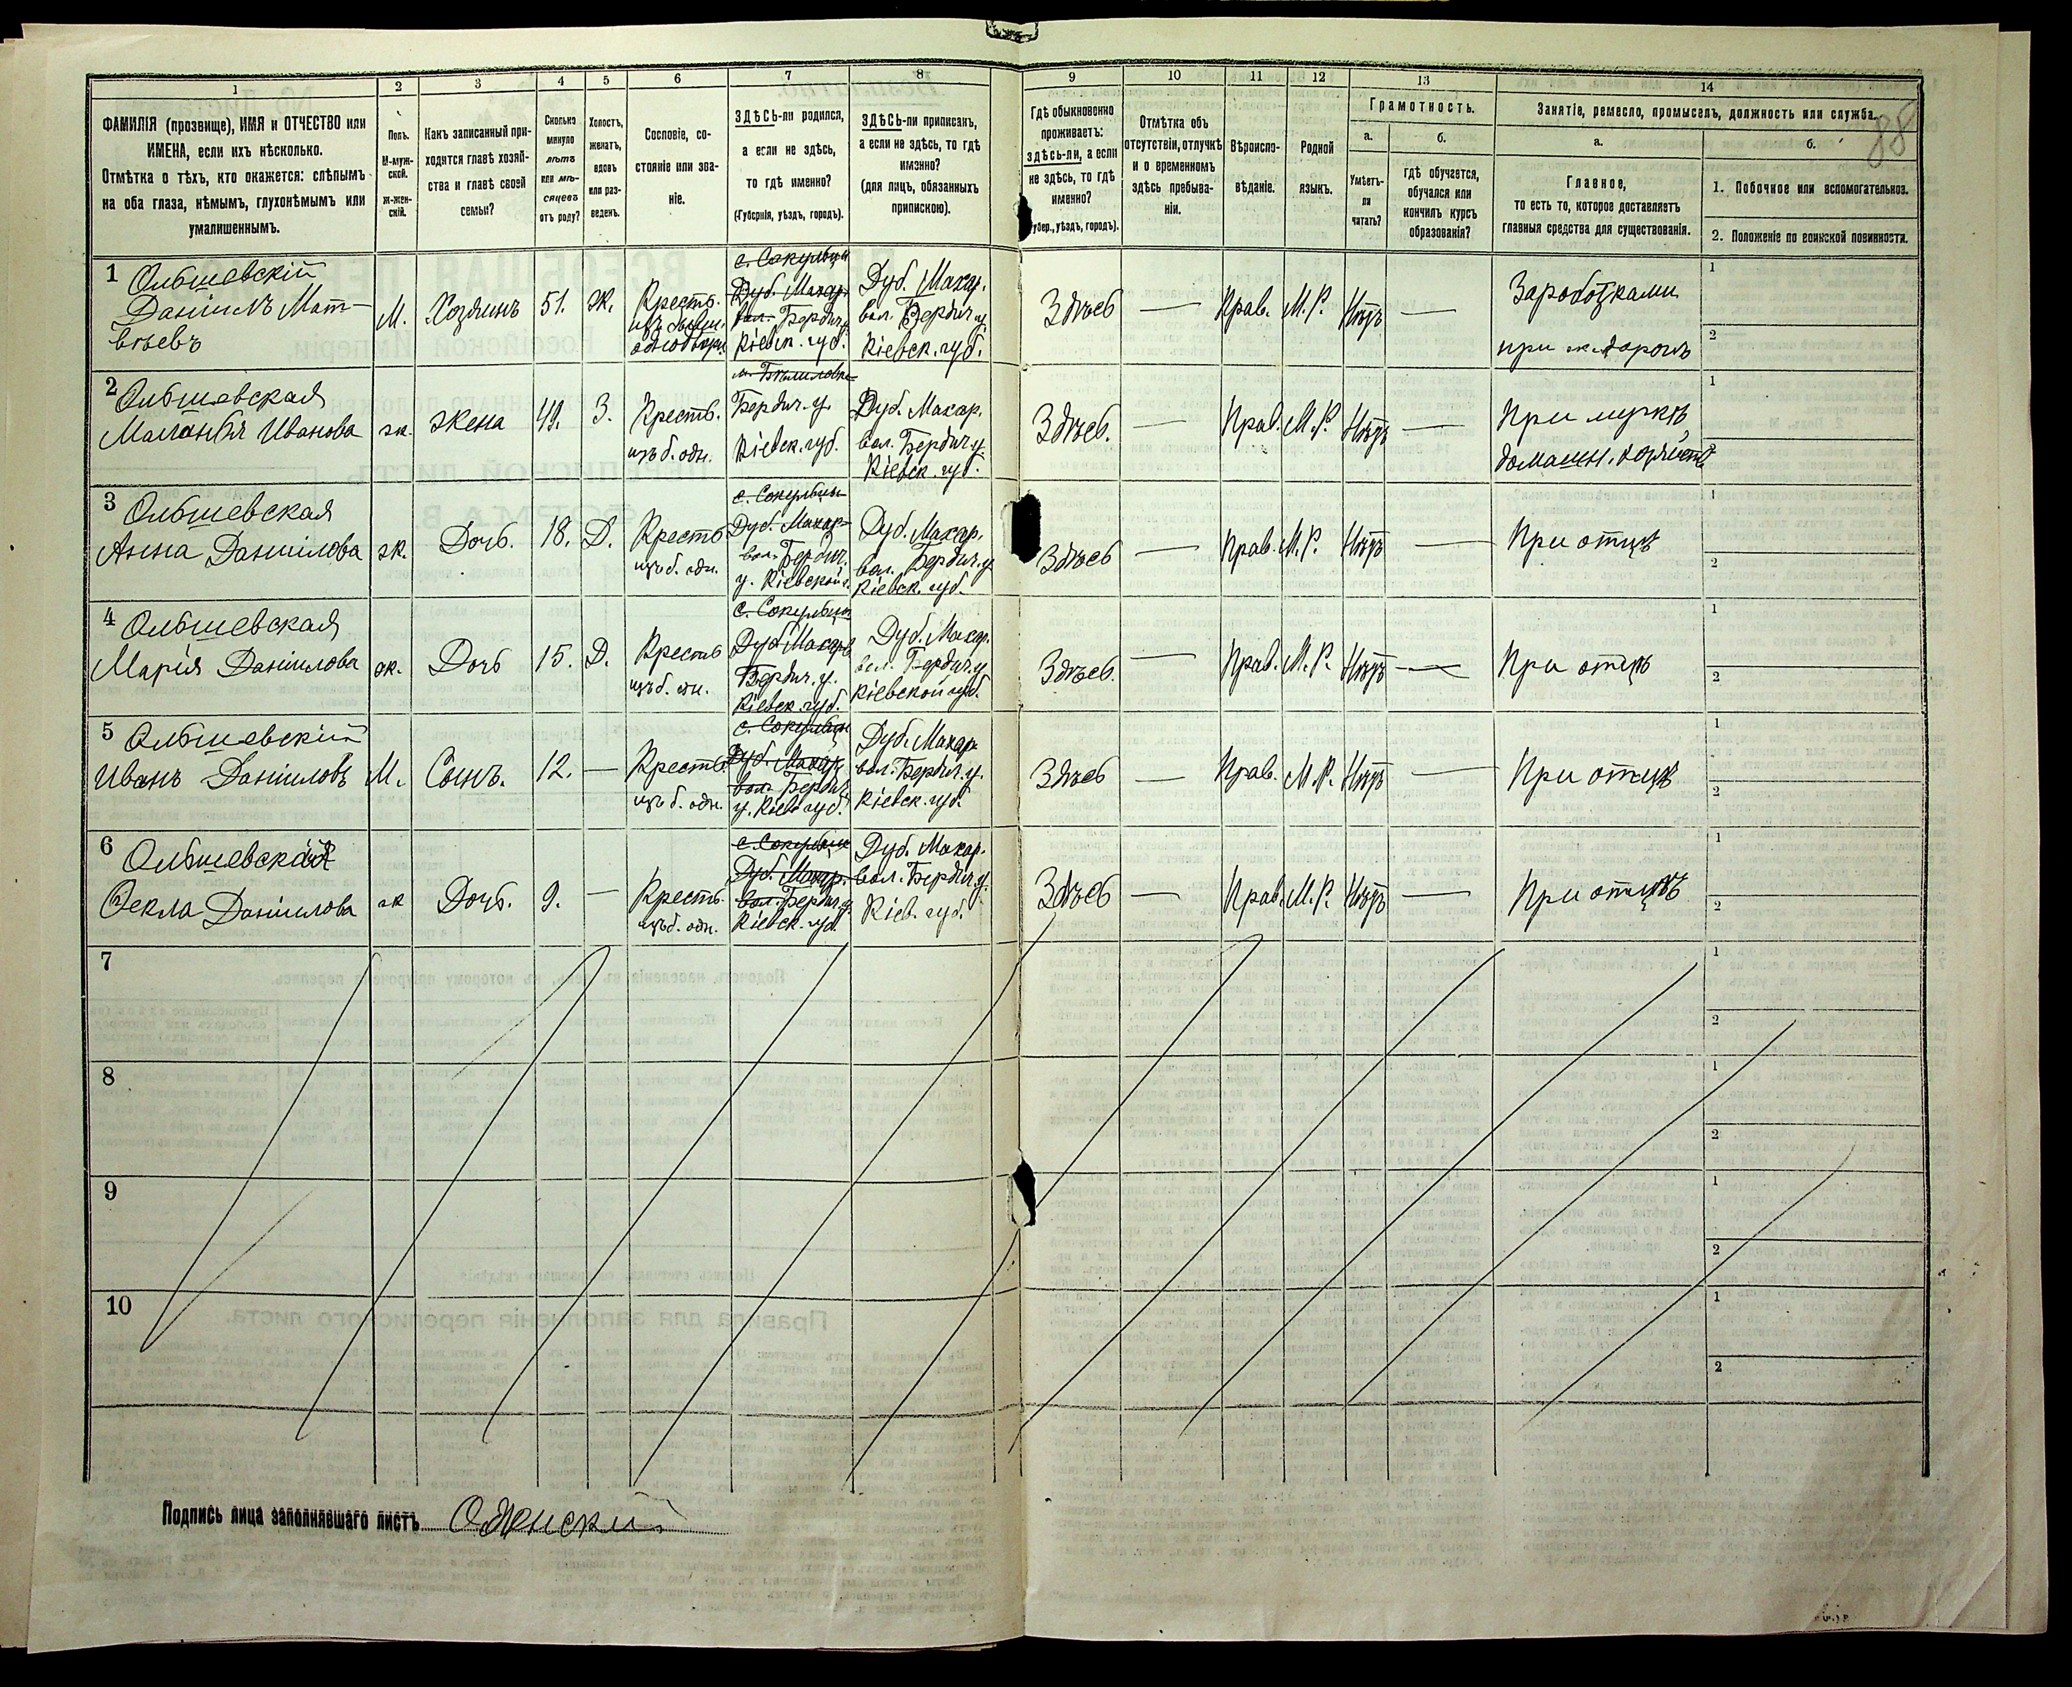 1
2
3
4
5
6
7
8
9
10
11
12
13
14
88
ФАМИЛІЯ (прозвище), ИМЯ и ОТЧЕСТВО или
ИМЕНА, если ихъ нѣсколько.
Отмѣтка о тѣхъ, кто окажется: слѣпымъ
на оба глаза, нѣмымъ, глухонѣмымъ или
умалишеннымъ.
Полъ.
М-муж-
ской.
ж-жен-
скій.
Какъ записанный при-
ходится главѣ хозяй-
ства и главѣ своей
семьи?
Сколько
минуло
лѣтъ
или мѣ-
сяцевъ
отъ роду?
Холостъ,
женатъ,
вдовъ
или раз-
веденъ.
Сословіе, со-
стояніе или зва-
ніе.
ЗДѢСЬ-ли родился,
а если не здѣсь,
то гдѣ именно?
(Губернія, уѣздъ, городъ).
ЗДѢСЬ-ли приписанъ,
а если не здѣсь, то гдѣ
именно?
(для лицъ, обязанныхъ
припискою).
Гдѣ обыкновенно
проживаетъ:
здѣсь-ли, а если
не здѣсь, то гдѣ
именно?
(Губер., уѣздъ, городъ).
Отмѣтка объ
отсутствіи, отлучкѣ
и о временномъ
здѣсь пребыва-
ніи.
Вѣроиспо-
вѣданіе.
Родной
языкъ.
Грамотность.
а.
б.
Умѣетъ-
ли
читать?
гдѣ обучается,
обучался или
кончилъ курсъ
образованія?
Занятіе, ремесло, промыселъ, должность или служба.
а.
б.
Главное,
то есть то, которое доставляетъ
главныя средства для существованія.
1. Побочное или вспомогательное.
2. Положеніе по воинской повинности.
1
Ольшевскій
Даніилъ Мат-
вѣевъ
М.
Хозяинъ
51.
Ж.
Крестъ.
изъ бывш.
однодворц.
с. Сокульцы
Дуб. Махар.
вол. Бердич. у.
Кіевск. губ.
Дуб. Махар.
вол. Бердич. у.
Кіевск. губ.
Здѣсь
—
Прав.
М. Р.
Нѣтъ
—
Заработками
1
2
2
Ольшевская
Маланья Иванова
ж.
жена
49.
З.
Крестъ.
изъ б. одн.
Бердич. у.
Кіевск. губ.
Дуб. Махар.
вол. Бердич. у.
Кіевск. губ.
Здѣсь.
—
Прав.
М. Р.
Нѣтъ
—
При мужѣ,
домашн. хозяйств
1
2
3
Ольшевская
Анна Даніилова
ж.
Дочь.
18.
Д.
Крестъ
изъ б. одн.
с. Сокульцы
Дуб. Махар-
вол. Бердич.
у. Кіевской г.
Дуб. Махар.
вол. Бердич. у
Кіевск. губ.
Здѣсь
—
Прав.
М. Р.
Нѣтъ
—
При отцѣ
1
2
4
Ольшевская
Марія Даніилова
ж.
Дочь
15.
Д.
Крестъ
изъ б. одн.
с. Сокульцы
Дуб Махаръ
Бердич. у.
Кіевск. губ.
Дуб. Махар.
вол. Бердич. у
Кіевской губ.
Здѣсь.
—
Прав.
М. Р.
Нѣтъ
—
При отцѣ
1
2
5
Ольшевскій
Иванъ Даніиловъ
М.
Сынъ.
12.
—
Крестъ.
изъ б. одн.
с. Сокульцы
Дуб. Махар.
вол. Бердич.
у. Кіев. губ.
Дуб. Махар.
вол. Бердич. у.
Кіевск. губ.
Здѣсь
—
Прав.
М. Р.
Нѣтъ
—
При отцѣ
1
2
6
Ольшевская
Ѳекла Даніилова
ж
Дочь.
9.
—
Крестъ.
изъ б. одн.
с. Сокульцы
Дуб. Махар.
вол. Бердич. у.
Кіевск. губ.
Дуб. Махар.
вол. Бердич. у.
Кіев. губ.
Здѣсь
—
Прав.
М. Р.
Нѣтъ
—
При отцѣ
1
2
7
1
2
8
1
2
9
1
2
10
1
2
Подпись лица заполнявшаго листъ